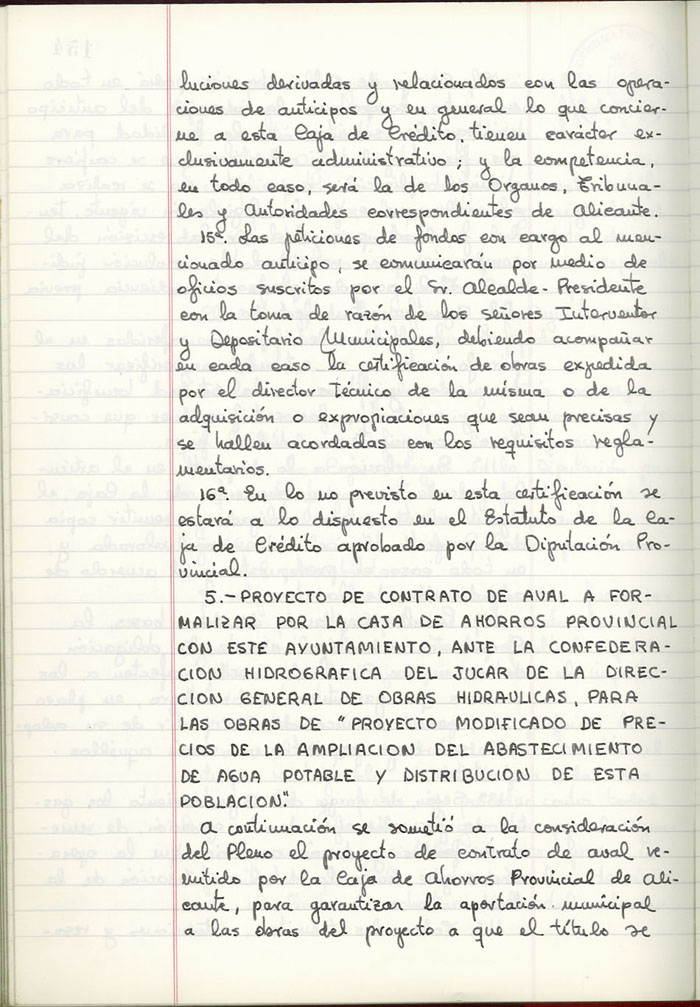 luciones derivadas y relacionados con las opera-
ciones de anticipos y en general lo que concier-
ne a esta Caja de Crédito, tienen carácter ex-
clusivamente administrativo; y la competencia,
en todo caso, será la de los Organos, Tribuna-
les y Autoridades correspondientes de Alicante.
15ª. Las peticiones de fondos con cargo al men-
cionado anticipo, se comunicarán por medio de
oficios suscritos por el Sr. Alcalde-Presidente
con la toma de razón de los señores Interventor
y Depositario Municipales, debiendo acompañar
en cada caso la certificación de obras expedida
por el director técnico de la misma o de la
adquisición o expropiaciones que sean precisas y
se hallen acordadas con los requisitos regla-
mentarios.
16ª. En lo no previsto en esta certificación se
estará a lo dispuesto en el Estatuto de la Ca-
ja de Crédito aprobado por la Diputación Pro-
vincial.
5.- PROYECTO DE CONTRATO DE AVAL A FOR-
MALIZAR POR LA CAJA DE AHORROS PROVINCIAL
CON ESTE AYUNTAMIENTO, ANTE LA CONFEDERA-
CION HIDROGRAFICA DEL JUCAR DE LA DIREC-
CION GENERAL DE OBRAS HIDRAULICAS, PARA
LAS OBRAS DE "PROYECTO MODIFICADO DE PRE-
CIOS DE LA AMPLIACION DEL ABASTECIMIENTO
DE AGUA POTABLE Y DISTRIBUCION DE ESTA
POBLACION."
A continuación se sometió a la consideración
del Pleno el proyecto de contrato de aval re-
mitido por la Caja de Ahorros Provincial de Ali-
cante, para garantizar la aportación municipal
a las obras del proyecto a que el título se